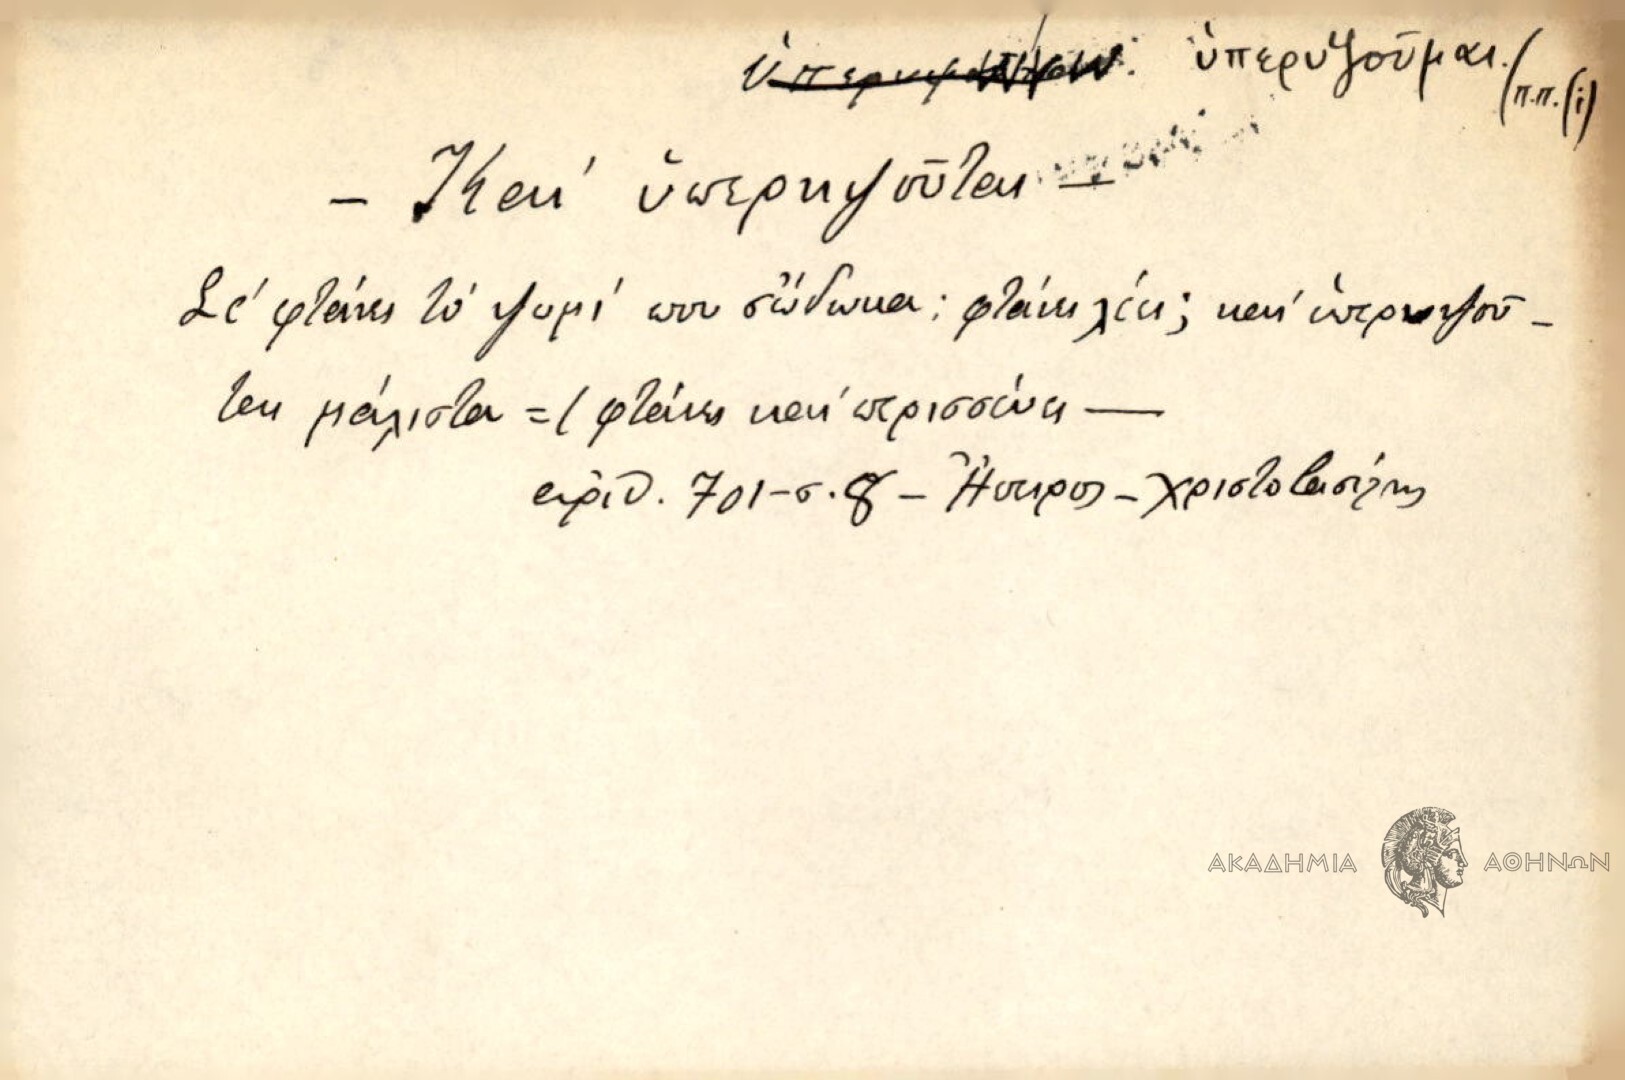 ὑπερυψοῦμαι. (π.π. (i)
– Καὶ ὑπερυψοῦται –
Σὲ φτάνει τὸ ψωμὶ που σὤδωκα; φτάνει λέει; καὶ ὑπερυψοῦ-
ται μάλιστα = ( φτάνει καὶ περισσεύει —
ἀριθ. 701 – σ. 8 – Ἤπειρος – Χριστοβασίλης
ΑΚΑΔΗΜΙΑ ΑΘΗΝΩΝ